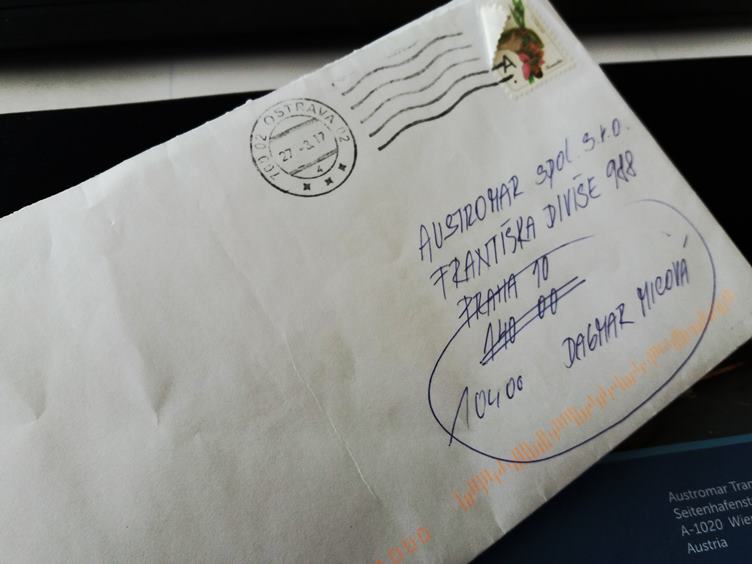 A
702 02 OSTRAVA 02
27.-3.17
4
AUSTROMAR spol. s.r.o.
FRANTIŠKA DIVIŠE 948
PRAHA 10
140 00
10400 DAGMAR MICOVÁ
Austromar Tran
Seitenhafenst
A-1020 Wie
Austria